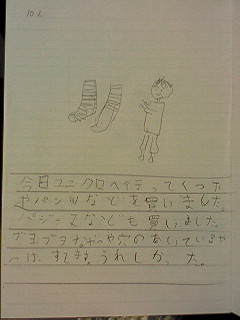 10.2
今日ユニクロへイテってくつ下
やパンツなどを買いました。
パジーマなども買いました。
ブヨブヨなやつや穴のあいているや
つは、すてます。うれしかった。